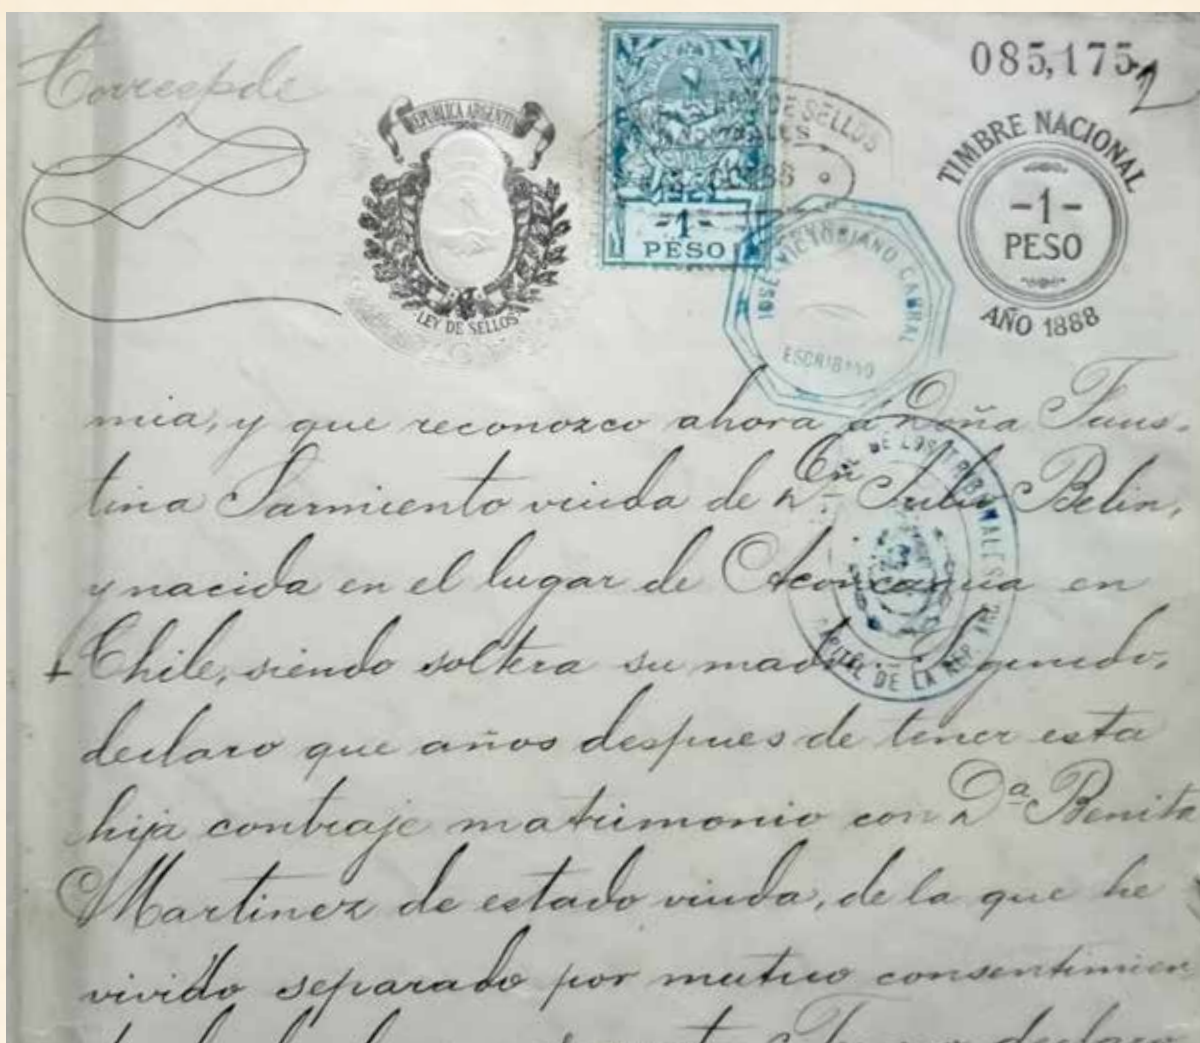 Correspde
REPUBLICA ARGENTINA
LEY DE SELLOS
-1-
PESO
DE SELLOS
JOSÉ VICTORIANO CABRAL
ESCRIBANO
085,175
2
TIMBRE NACIONAL
-1-
PESO
AÑO 1888
DE LOS TRIBUNALES
CAPITAL DE LA REP. ARG
mia, y que reconozco ahora á Doña Faus-
tina Sarmiento viuda de Dn. Julio Belin,
y nacida en el lugar de Aconcagua en
Chile, siendo soltera su madre. Segundo,
declaro que años despues de tener esta
hija contraje matrimonio con Da. Benita
Martinez de estado viuda, de la que he
vivido separado por mutuo consentimien
declaro